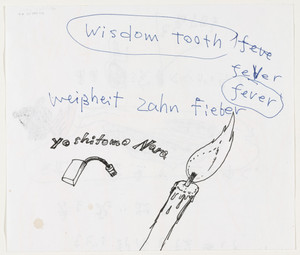 wisdom tooth
fever
fever
weißheit zahn fieber
yoshitomo Nara